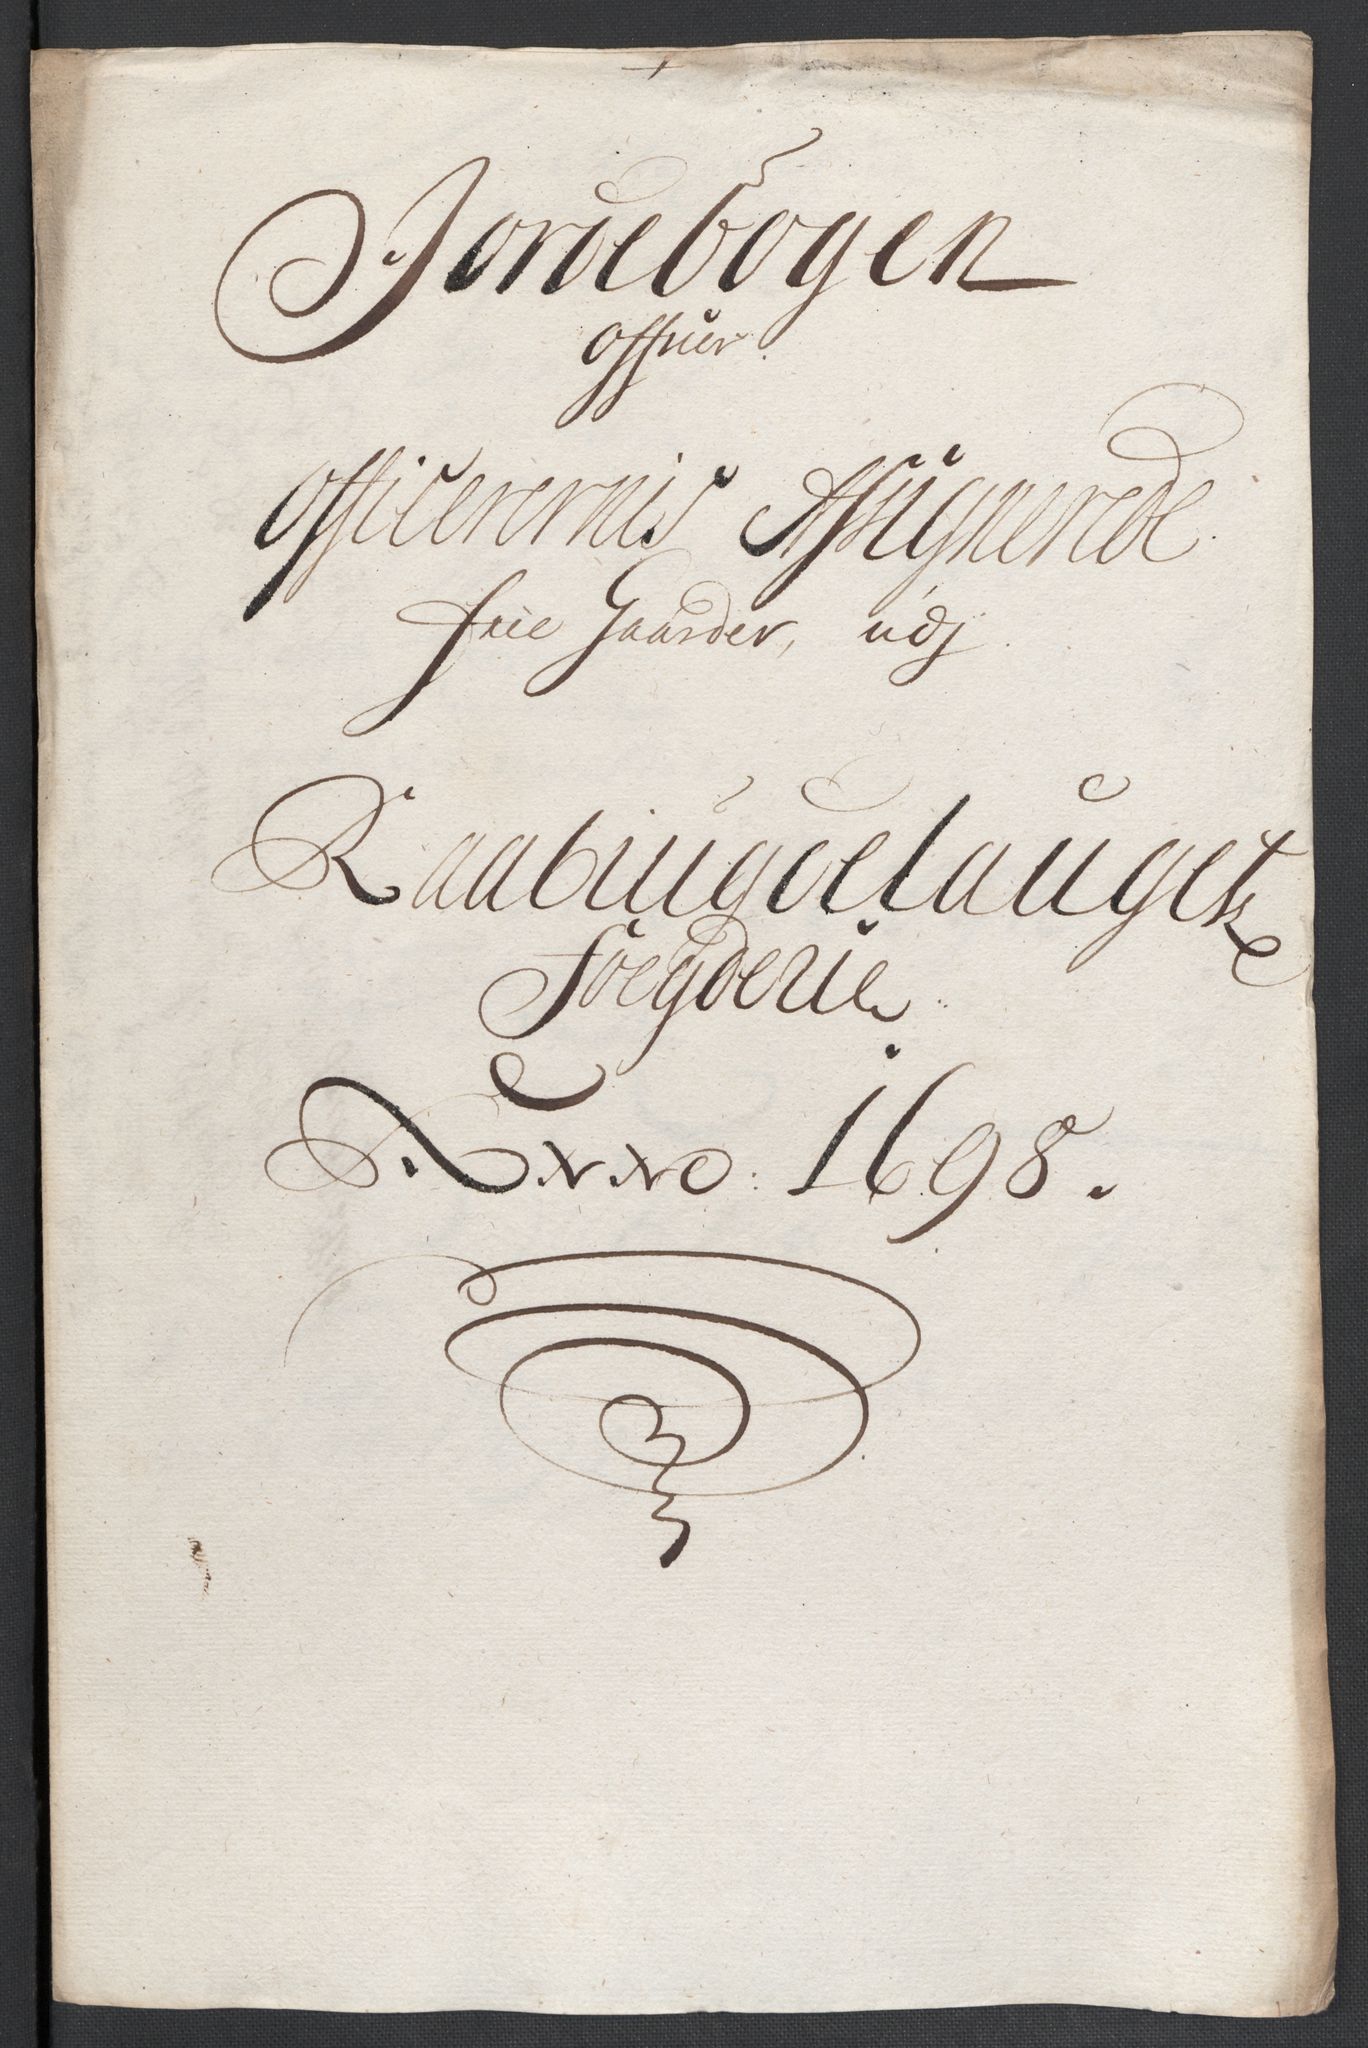 Jordebogen
offuer
Officerernis Assignerede
frie Gaarder, udj
Raabiugdelauget
Foegderie
Anno: 1698.